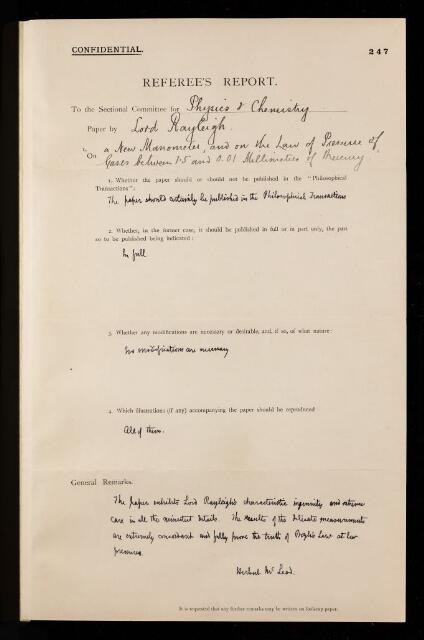 CONFIDENTIAL.
247
REFEREE'S REPORT.
To the Sectional Committee for Physics & Chemistry
Paper by Lord Rayleigh.
On a New Manometer, and on the Law of Pressure of
Gases between 1.5 and 0.01 Millimetres of Mercury.
1. Whether the paper should or should not be published in the "Philosophical
Transactions":
The paper should certainly be published in the Philosophical Transactions
2. Whether, in the former case, it should be published in full or in part only, the part
so to be published being indicated:
In full
3. Whether any modifications are necessary or desirable, and, if so, of what nature:
No modifications are necessary
4. Which illustrations (if any) accompanying the paper should be reproduced
All of them.
General Remarks.
The paper exhibits Lord Rayleigh's characteristic ingenuity and extreme
care in all the minutest details. The results of the delicate measurements
are extremely concordant and fully prove the truth of Boyle's Law at low
pressures.
Herbert McLeod.
It is requested that any further remarks may be written on foolscap paper.